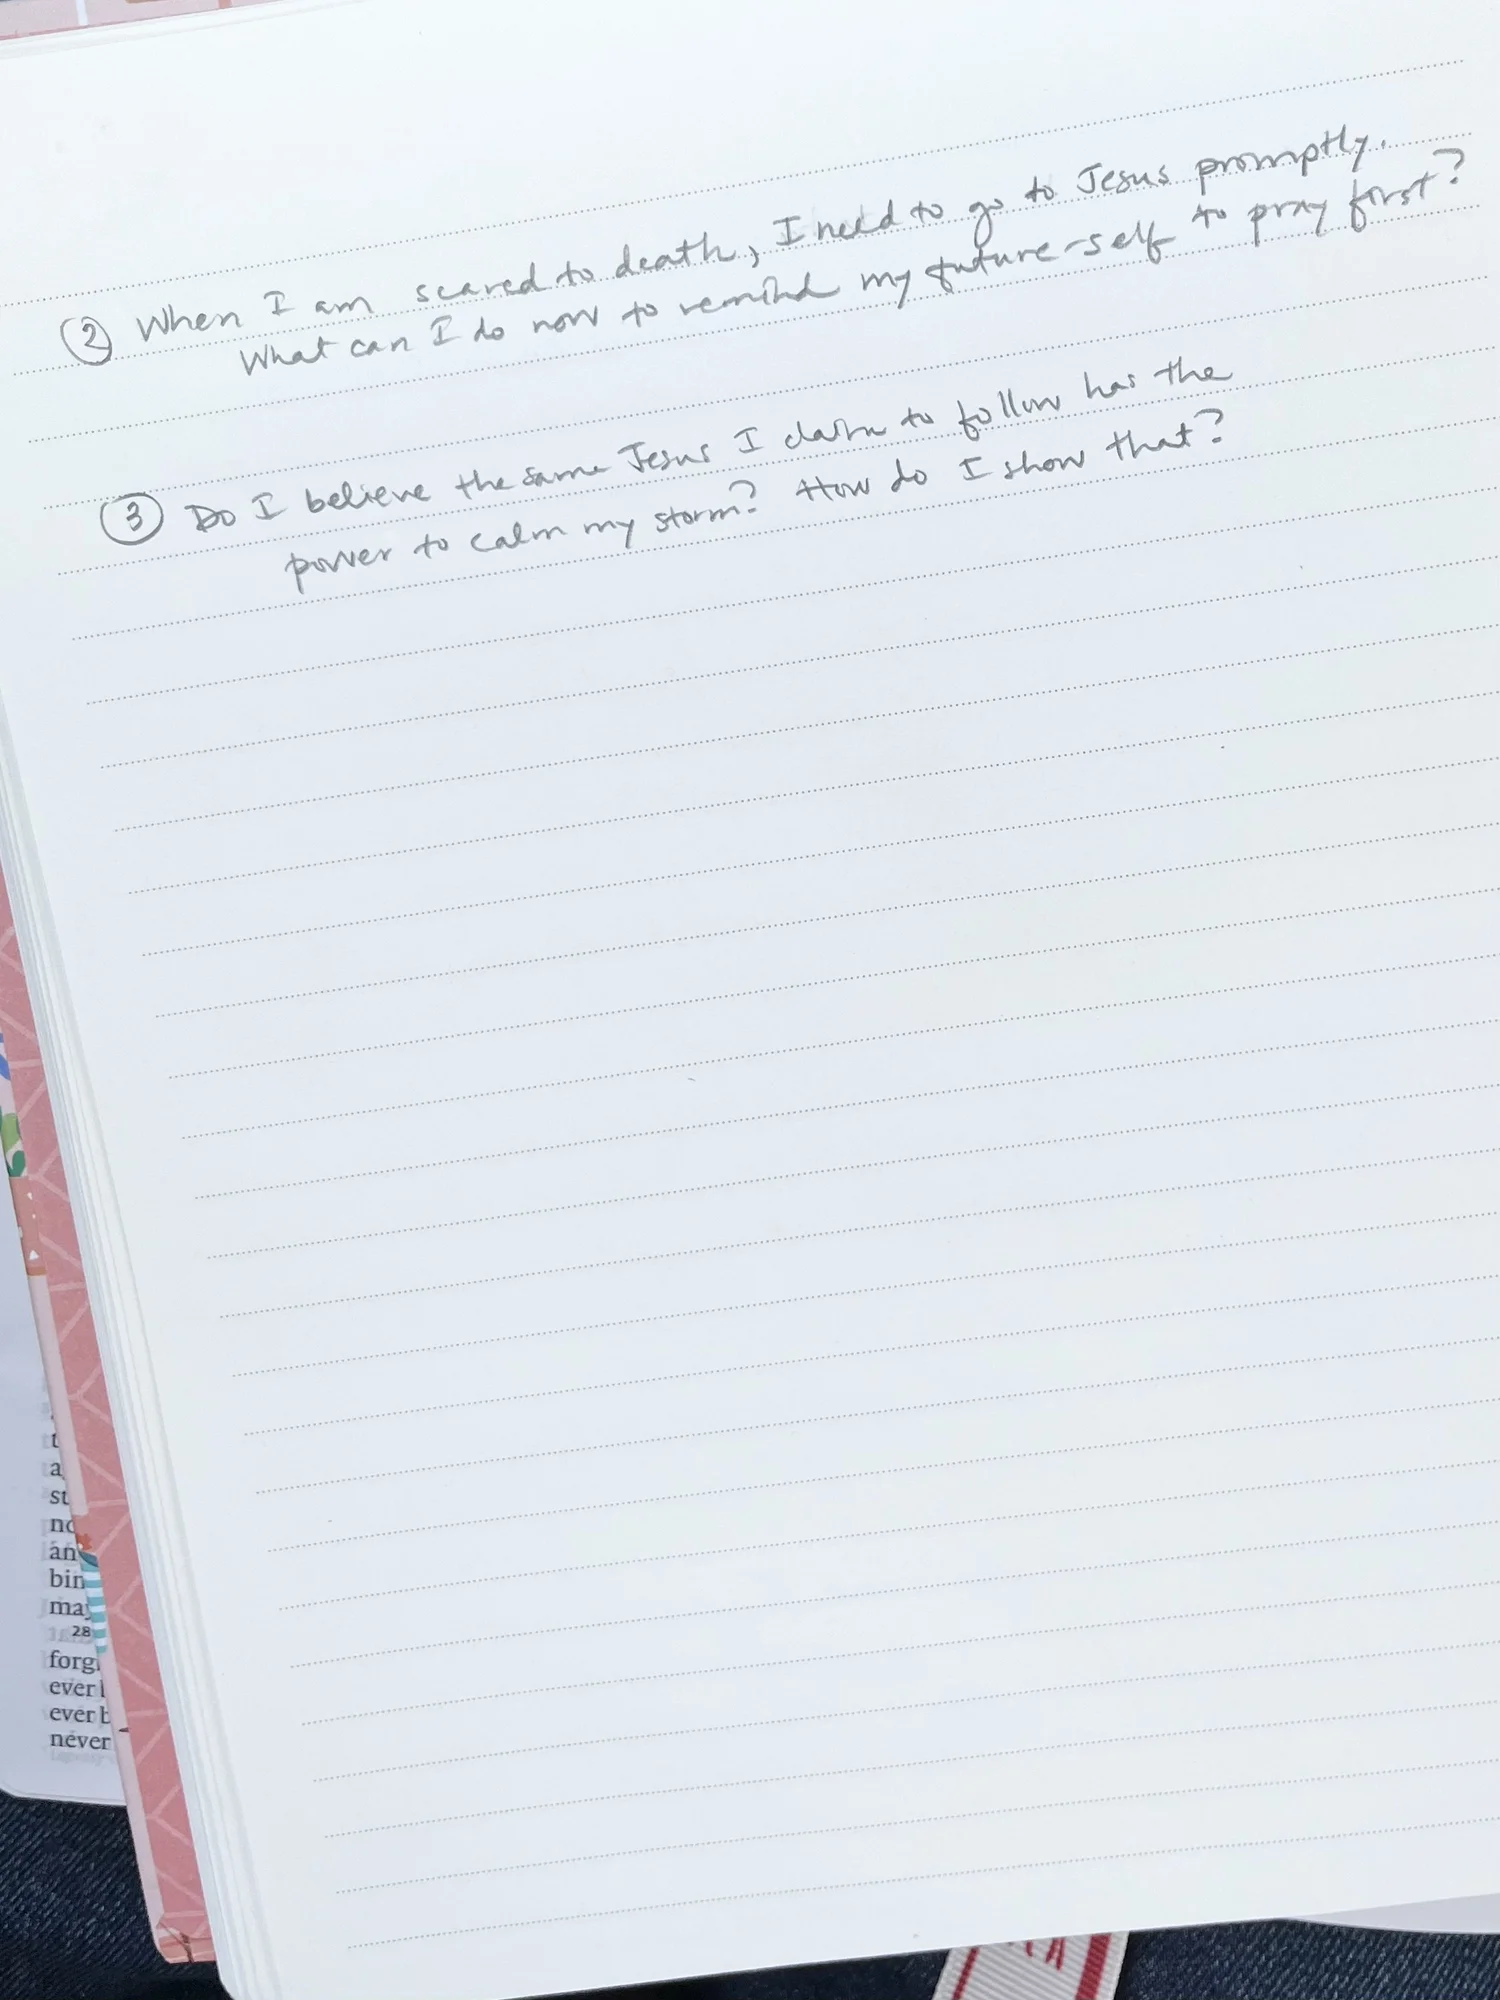 ② When I am scared to death, I need to go to Jesus promptly.
What can I do now to remind my future-self to pray first?
③ Do I believe the same Jesus I claim to follow has the
power to calm my storm? How do I show that?
st
bin
may
28
forgi
ever
ever b
never